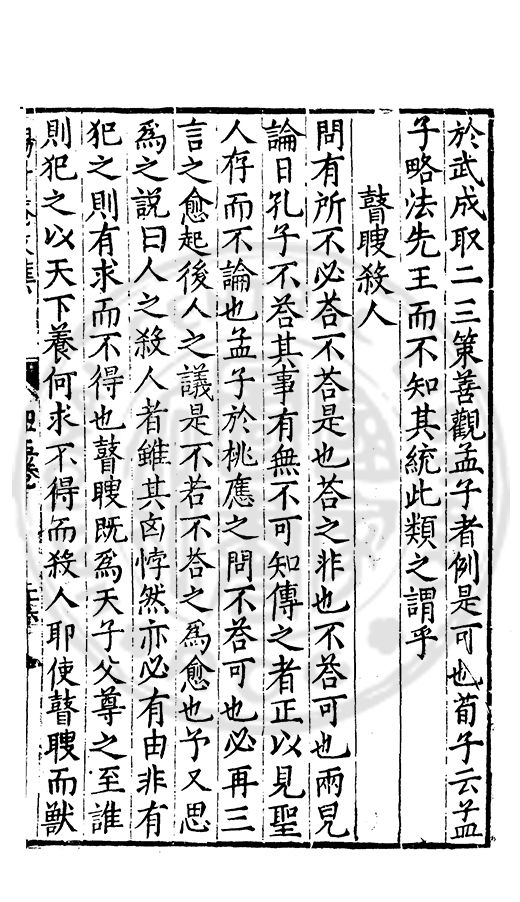 於武成取二三策善觀孟子者例是可也荀子云孟
子略法先王而不知其統此類之謂乎
瞽瞍殺人
問有所不必荅不荅是也荅之非也不荅可也兩兒
論日孔子不荅其事有無不可知傳之者正以見聖
人存而不論也孟子於桃應之問不荅可也必再三
言之愈起後人之議是不若不荅之爲愈也予又思
爲之說曰人之殺人者雖其凶悖然亦必有由非有
犯之則有求而不得也瞽瞍既爲天子父尊之至誰
則犯之以天下養何求不得而殺人耶使瞽瞍而獸